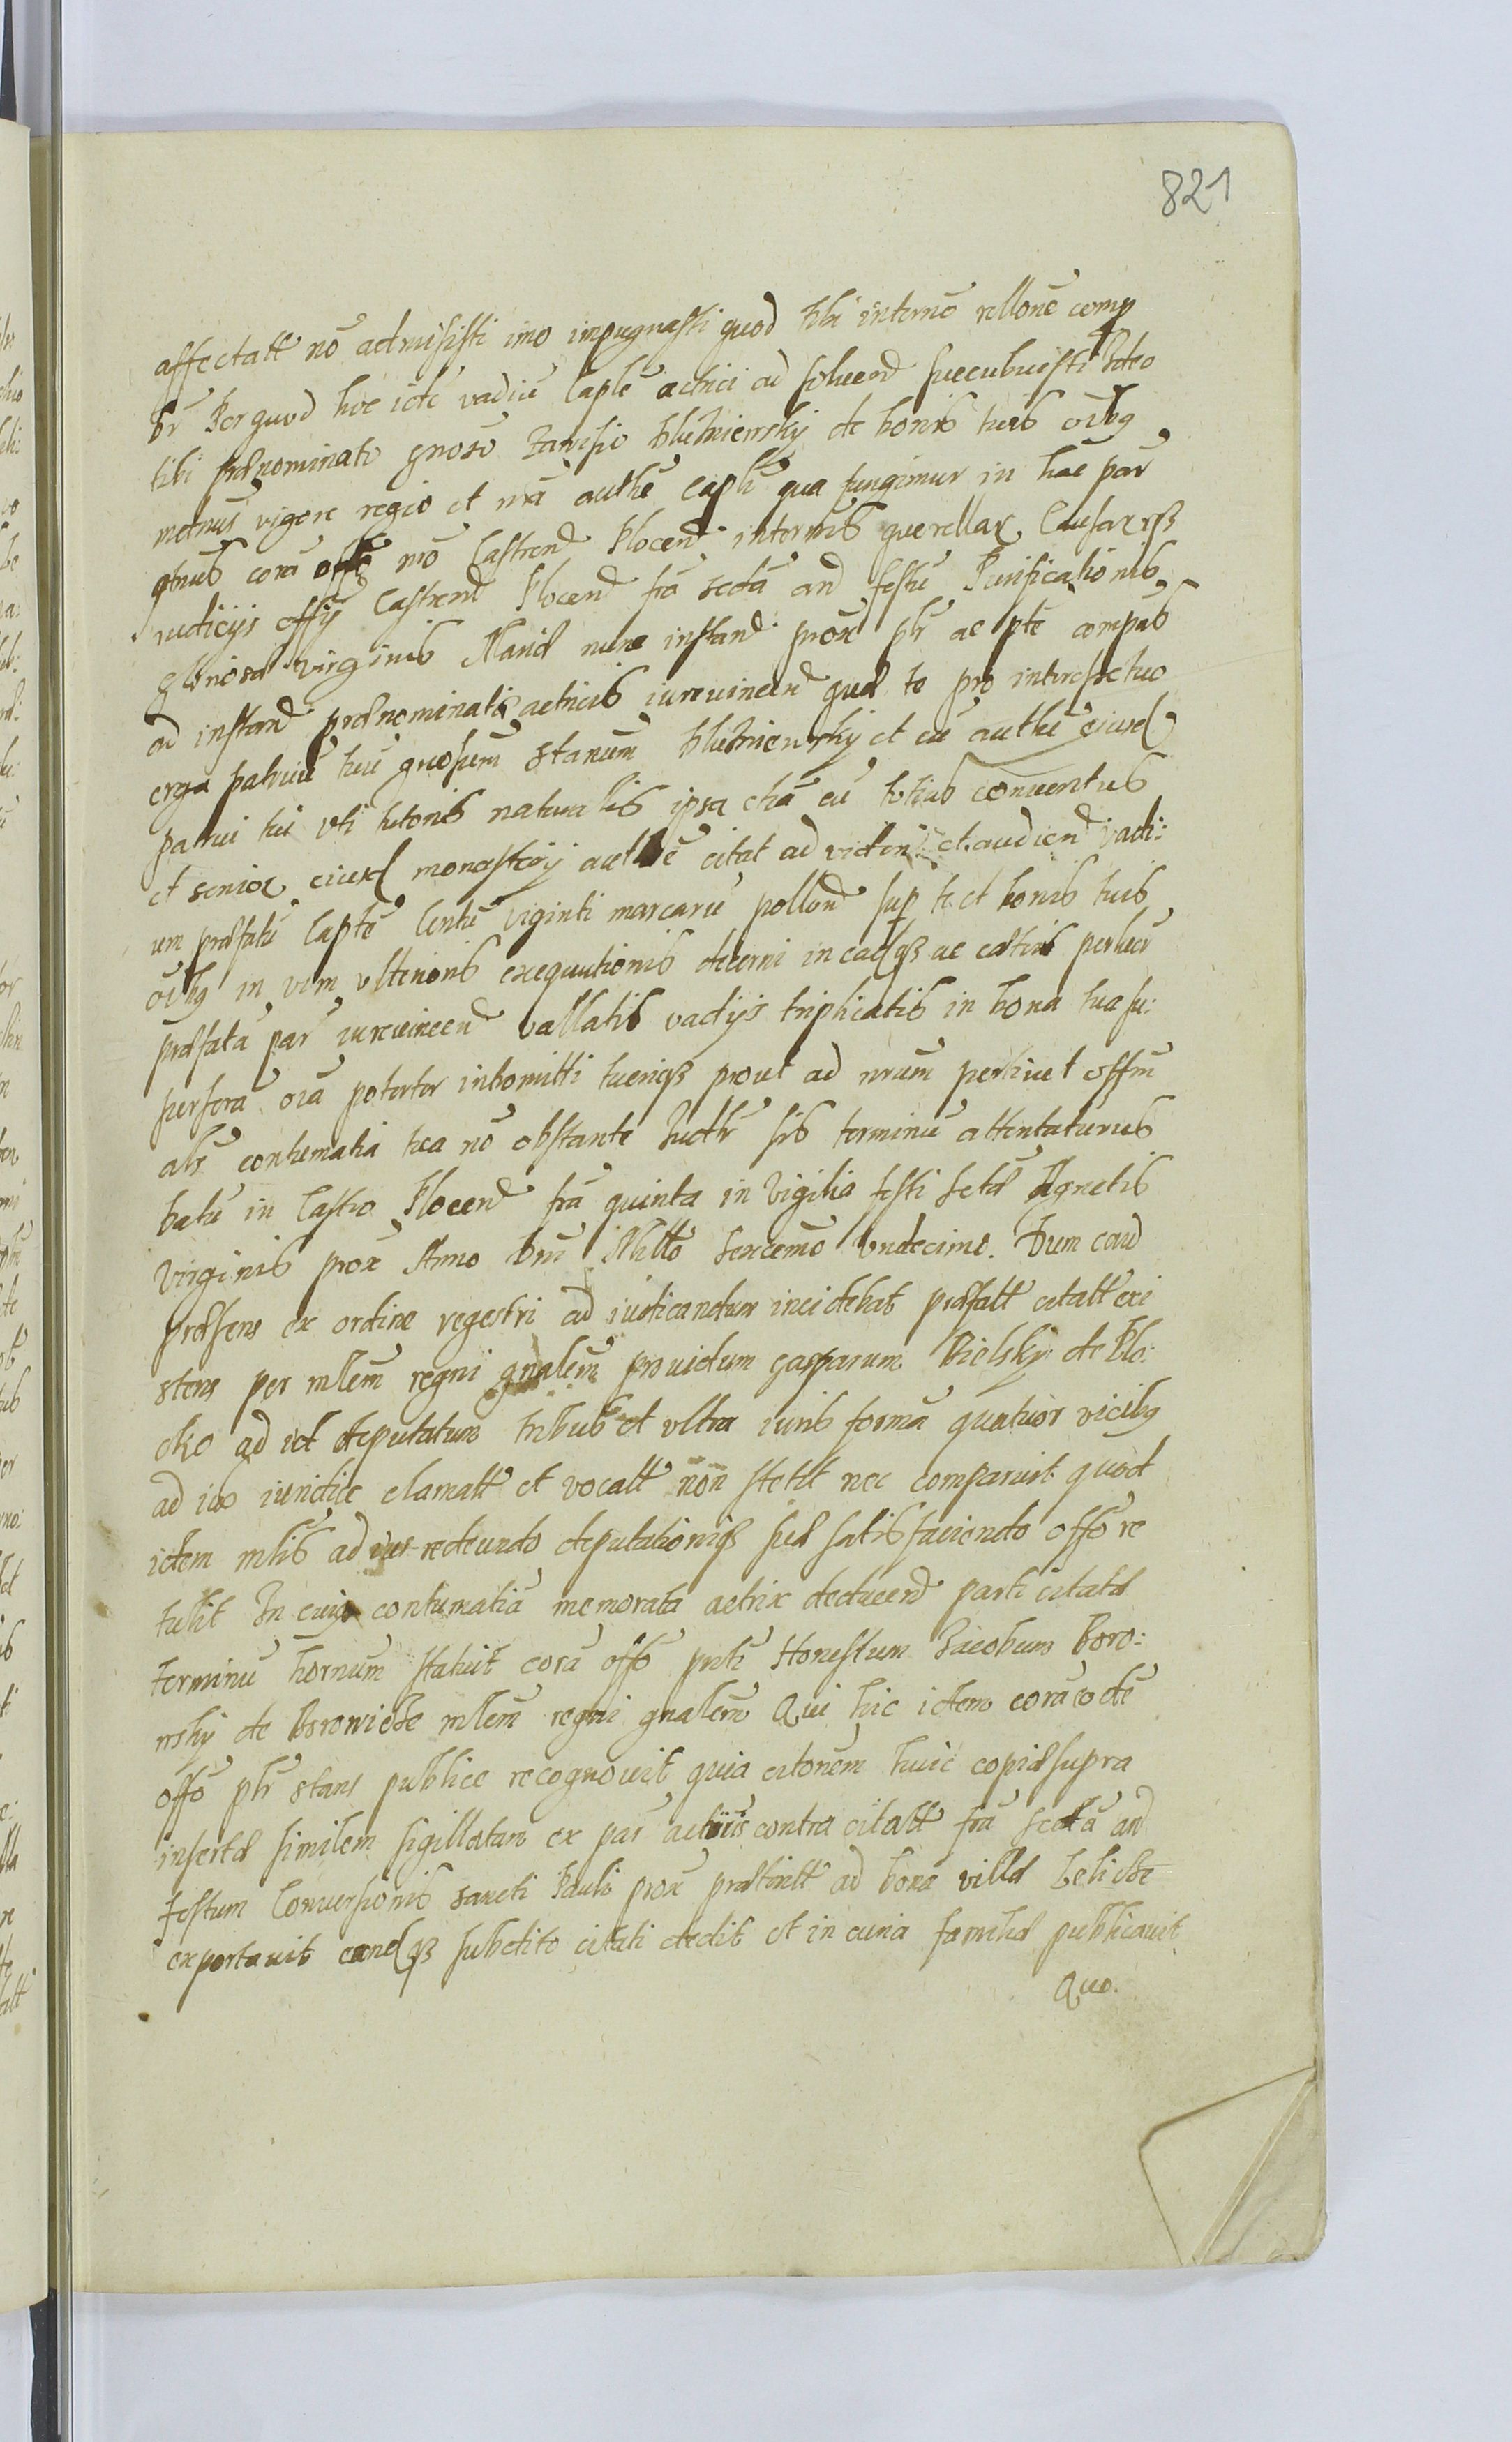 821
affectatt nō admisisti imo impugnasti quod tibi internō rellonē comp
br̄ Per quod hoc idē vadiū Caplē actrici ad solvend succubuisti Ideo
tibi prænominato gnoso Paulo Bluzniewsky de bonis tuis oībg
metnus vigore regio et nrā authē capli qua fungimur in hac par
qtnus corā offō nrō Castren Plocen in termīs querellar Causar qß
iudicijs offij Castren Plocen fra secdā and festū Purificationis
Gloriosæ virginis Mariæ nunc instand prox plr ac pte compas
ad instan prænominatæ actricis iurevincend quæ te pro interesse tuo
erga patruū tuū gnosum Stanum Bluzniewsky et cū authē eiusd
patrui tui uti tutoris naturalis ipsa etiā cū totius conventus
et senior eiusd monasterij authē citat ad viden et audiend vadi:
um præfatū Caplē Centū viginti marcarū pollon sup te et bonis tuis
oībg in vim ulterioris exequutionis decerni in eadqß ac cæteris per
præfatā par iurevincend vallatis vadijs triplicatis in bona tua su:
perfora oīa potertor intromitti tueriqß prout ad nrum pertinet offm
als contumatia tua nō obstante Iudr sis terminū attentaturus
Datū in Castro Plocen fra quinta in Vigilia festi Sctæ Agnetis
Virginis prox Anno Dni Millō Sexcemō undecimo. Dum caud
præsens ex ordine regestri ad iudicandum incidebat præfatt citatt exi
stens per mlem regni gnalem providum Gasparum Bielsky de Plo:
cko ad id deputatum tribus et ultra iuris formā quatuor vicibg
ad ius iuridice clamatt et vocatt non stetit nec comparuit quod
idem mlis ad ius redeundo deputationiqß suæ satisfaciendo offō re
tulit In cuig contumatiā memorata actrix deducend parti citatæ
terminū hornum statuit corā offō pnti Honestum Jacobum Boro:
wsky de Borowicze mlem regni gnalem Qui hic idem corā eodē
offō plr stans publice recognovit quia citonem huic copiæ supra
insertæ similem sigillatam ex par actricis contra citatt fra secdā an
festum Conversionis sancti Pauli prox præteritt ad bona villæ Leticze
exportavit eandqß subdito citati dedit et in curia familiæ publicavit
Quo.